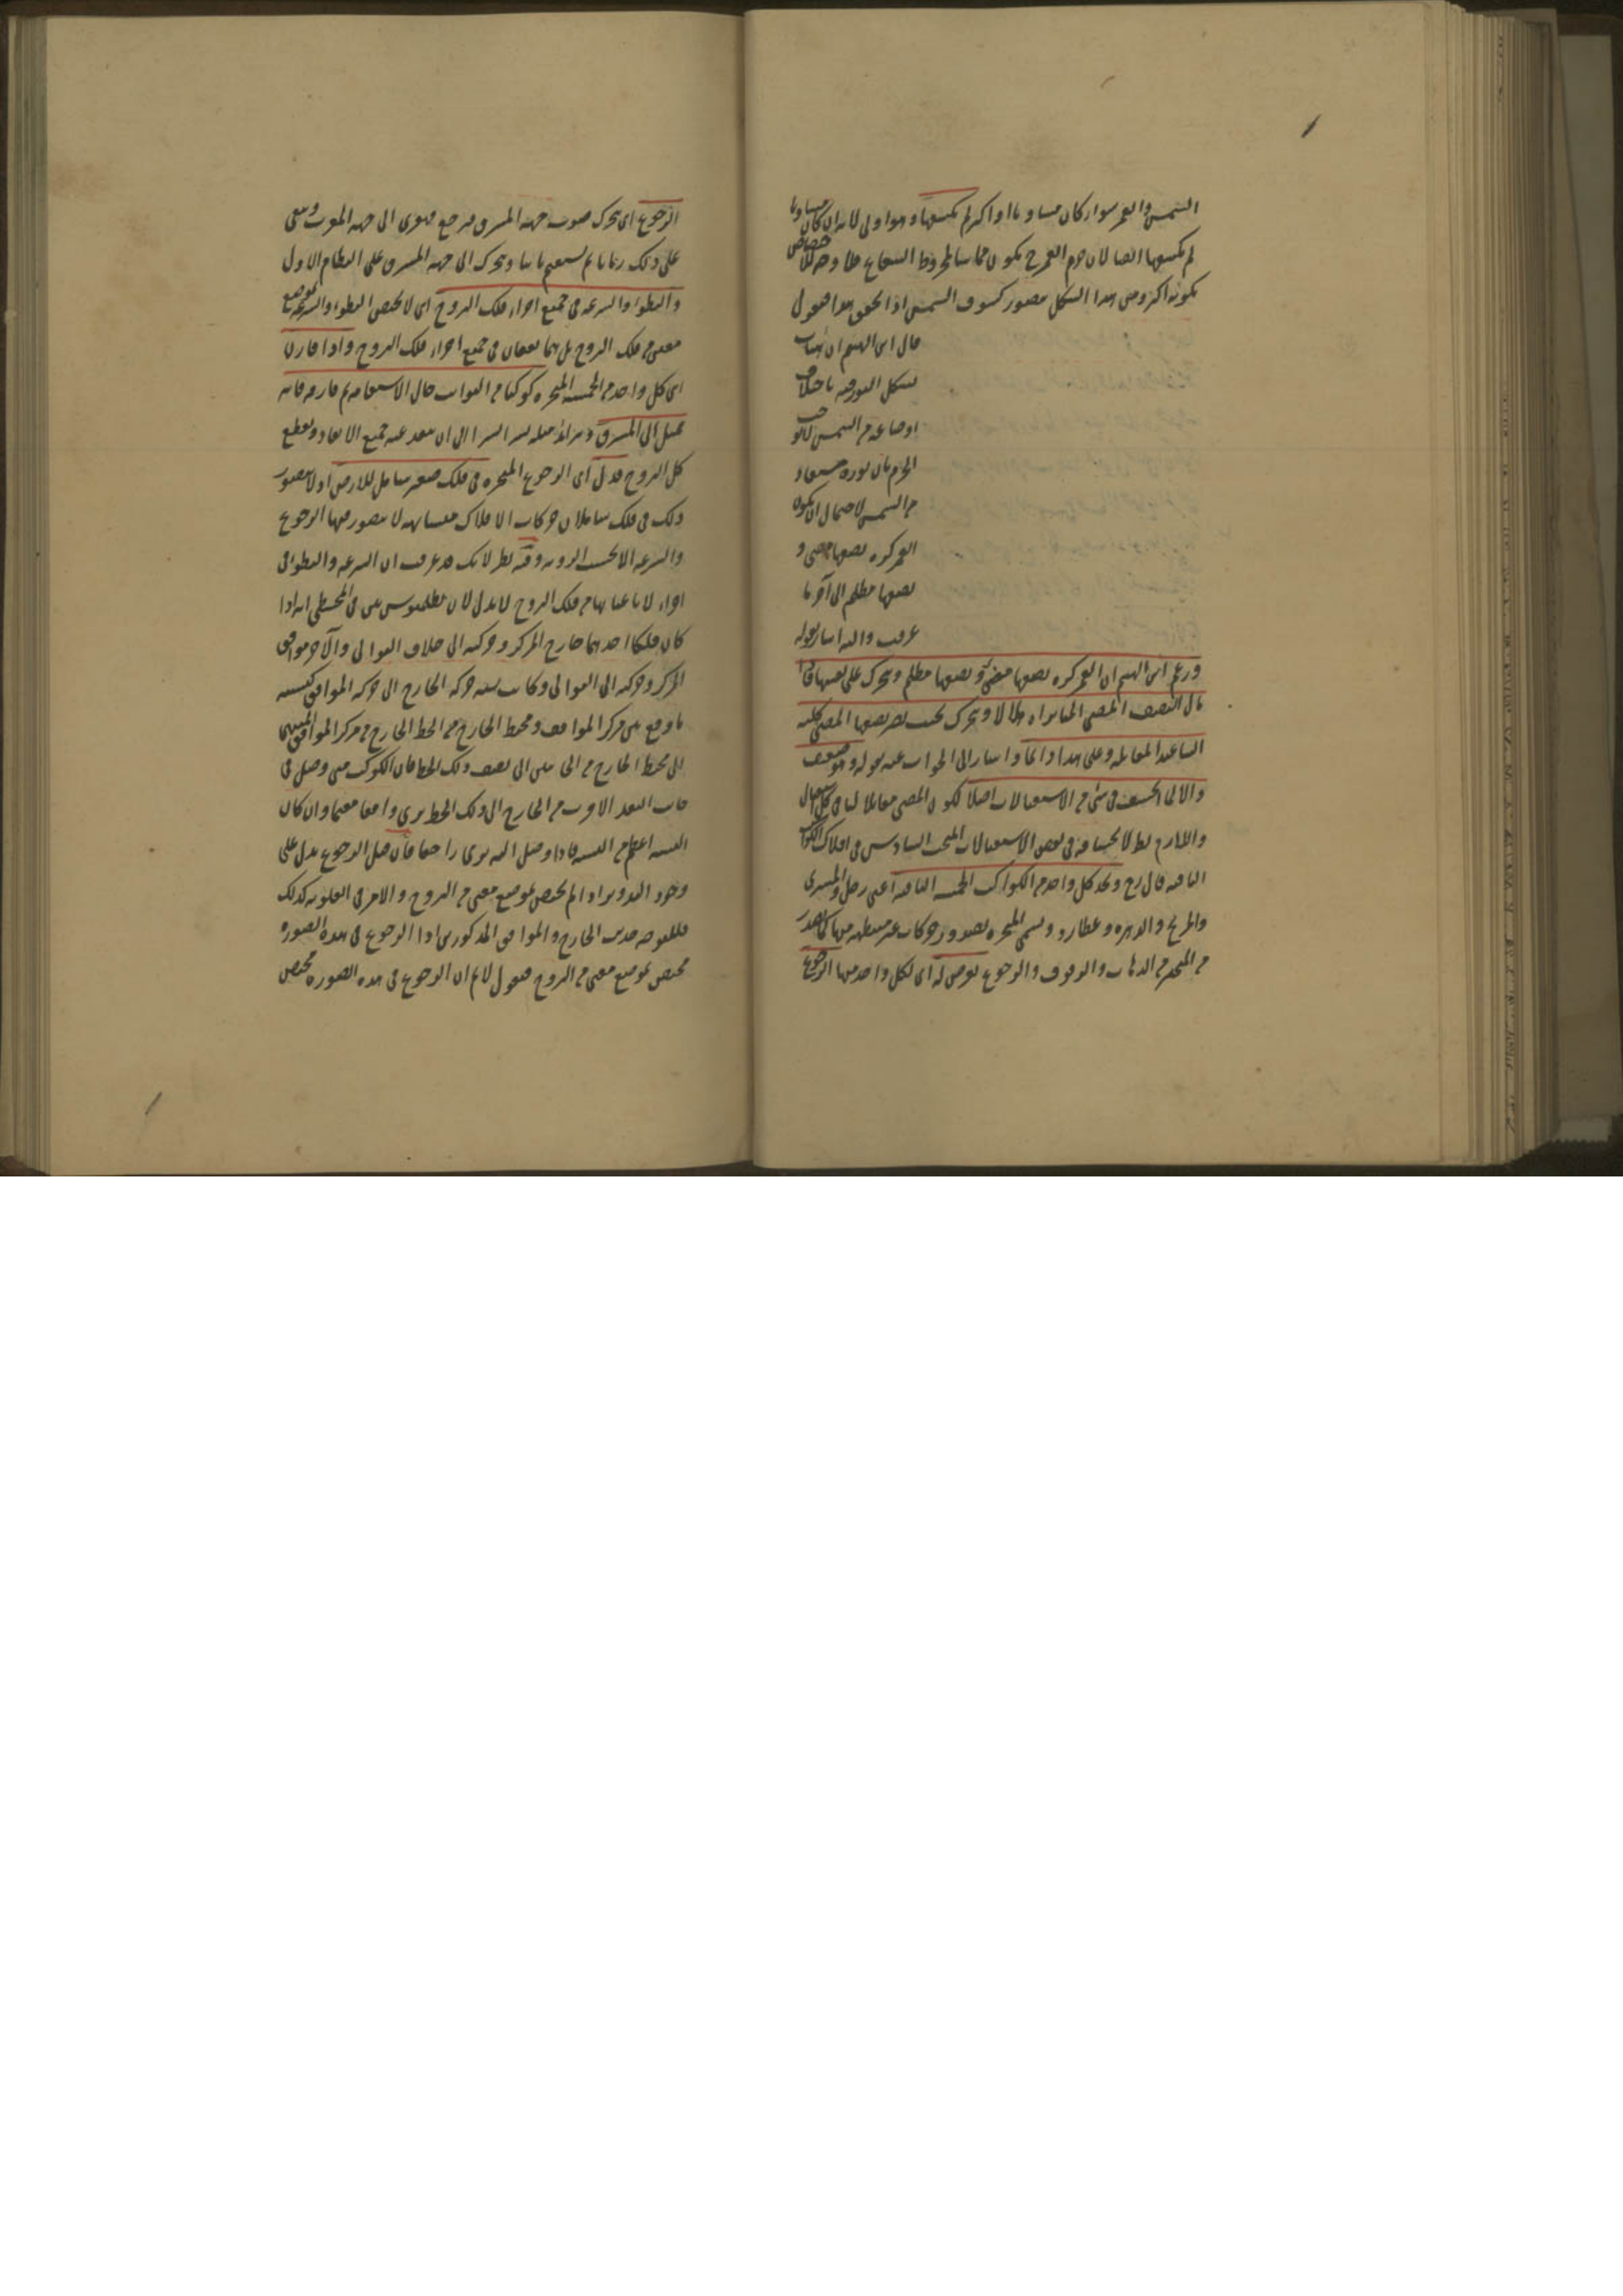 الشمس والقمر سواء كان مساويا او اكبر لم يكسفها وهو اولى لانه ان كان مساويا
لم يكسفها ايضا لان جرم القمر ح يكون مماسا لمخروط الشعاع
بكونه اكبر وعلى هذا الشكل يتصور كسوف الشمس اذا تحقق هذا فنقول
قال ابن الهيثم ان
تشكل النور فيه باختلاف
اوضاعه من الشمس لا يوجب
الجزم بان نوره مستفاد
من الشمس لاحتمال ان يكون
القمر كرة نصفها مضيء و
نصفها مظلم الى آخر ما
عرفت واليه اشار بقوله
وزعم ابن الهيثم ان القمر كرة نصفها مضيء ونصفها مظلم ويتحرك على نفسها فاذا
مال النصف المضيء الينا نراه هلالا ويتحرك بحيث يصير نصفها المضيء كله
الينا عند المقابلة وعلى هذا دائما واشار الى الجواب عنه بقوله وهو ضعيف
والا لما انخسف في شيء من الاستقبالات اصلا لكون المضيء مقابلا لنا في كل استقبال
واللازم بط لانخسافه في بعض الاستقبالات المبحث السادس في افلاك الكواكب
الباقية قال رح ونجد كل واحد من الكواكب الخمسة الباقية اعني زحل والمشتري
والمريخ والزهرة وعطارد وتسمى المتحيرة لصدور حركات غير منتظمة منها كما يصدر
من المتحير من الذهاب والوقوف والرجوع يعرض له اي لكل واحد منها الرجوع
الرجوع اي يتحرك صوب جهة المشرق ثم يرجع فيهوي الى جهة المغرب ويبقى
على ذلك زمانا ثم يستقيم ثانيا ويتحرك الى جهة المشرق على النظام الاول
والبطوء والسرعة في جميع اجزاء فلك البروج اي لا يختص البطوء والسرعة بموضع
معين من فلك البروج بل هما يقعان في جميع اجزاء فلك البروج واذا قارن
اي كل واحد من الخمسة المتحيرة كوكبا من الثوابت حال الاستقامة ثم فارقه فانه
يميل الى المشرق ويتزايد ميله يسيرا يسيرا الى ان يبعد عنه جميع الابعاد ويقطع
كل البروج فدل اي الرجوع المتحيرة في فلك صغير شامل للارض اذ لا يتصور
ذلك في فلك شامل لان حركات الافلاك متشابهة لا يتصور فيها الرجوع
والسرعة الا بحسب الرؤية وفيه نظر لانك قد عرفت ان السرعة والبطوء في
اجزاء لا باعيانها من فلك البروج لا يدل لان بطلميوس بين في المجسطي انه اذا
كان فلكا احدهما خارج المركز وحركته الى خلاف التوالي والآخر موافق
المركز وحركته الى التوالي وكانت نسبة حركة الخارج الى حركة الموافق كنسبة
ما وقع بين مركز الموافق ومحيط الخارج من الخط الخارج من مركز الموافق المنتهي
الى محيط الخارج من الجانبين الى نصف ذلك الخط فان الكوكب متى وصل في
جانب البعد الاقرب من الخارج الى ذلك الخط يرى واقفا مقيما وان كان
النسبة اعظم من النسبة فاذا وصل اليه يرى راجعا فان قيل الرجوع يدل على
وجود التدوير اذا لم يختص بموضع معين من البروج والامر في العلوية كذلك
بخلاف الخارج والموافق المذكورين اذا الرجوع في هذه الصورة
مختص بموضع معين من البروج فنقول لانم ان الرجوع في هذه الصورة مختص